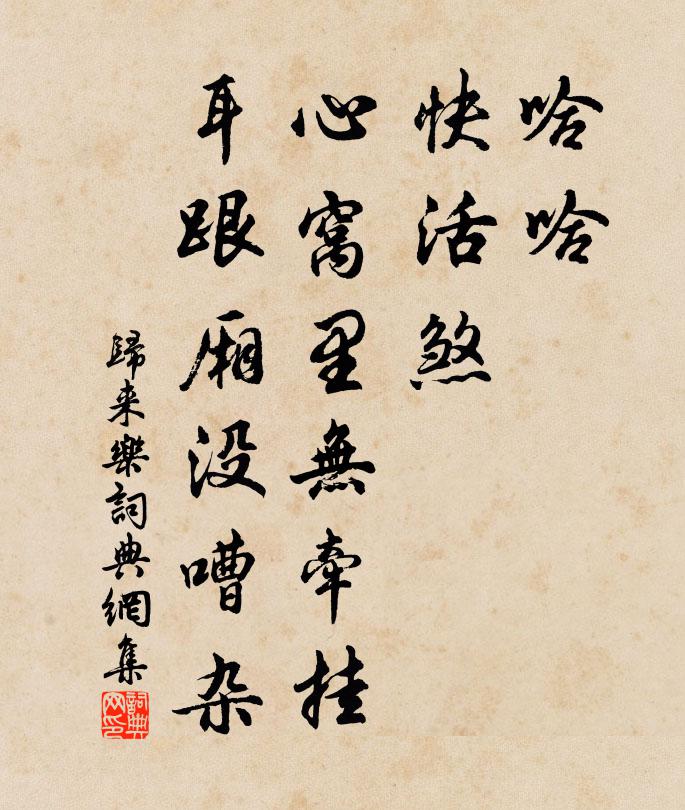 哈哈
快活煞
心窩里無牽挂
耳跟厢没嘈杂
歸来樂詞典網集
詞典
网印